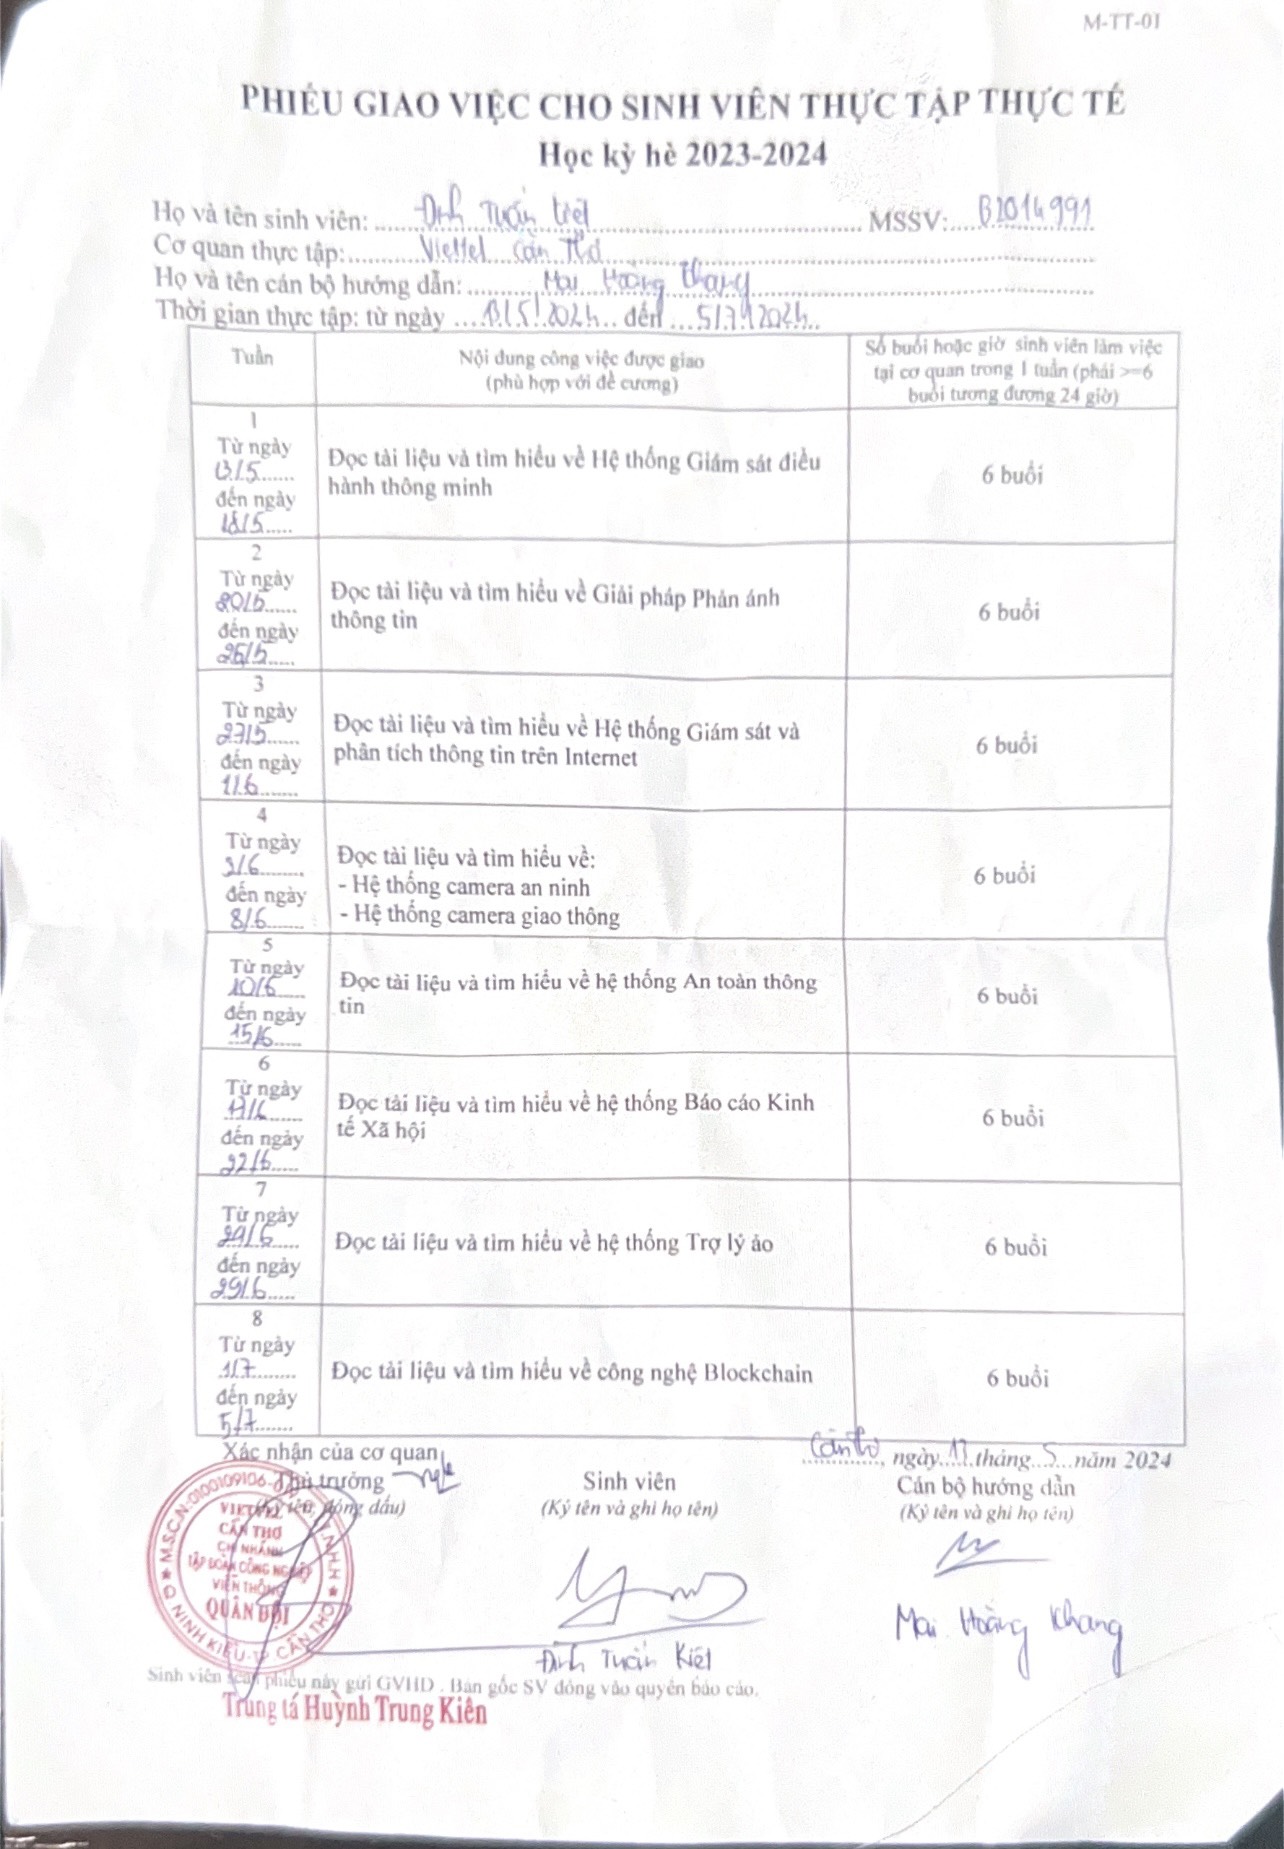 M-TT-01
PHIẾU GIAO VIỆC CHO SINH VIÊN THỰC TẬP THỰC TẾ
Học kỳ hè 2023-2024
Họ và tên sinh viên: Đinh Tuấn Kiệt MSSV: B2014991
Cơ quan thực tập: Viettel Cần Thơ
Họ và tên cán bộ hướng dẫn: Mai Hoàng Khang
Thời gian thực tập: từ ngày 13/5/2024 đến 5/7/2024
Tuần
Nội dung công việc được giao
(phù hợp với đề cương)
Số buổi hoặc giờ sinh viên làm việc
tại cơ quan trong 1 tuần (phải >=6
buổi tương đương 24 giờ)
1
Từ ngày
13/5
đến ngày
18/5
Đọc tài liệu và tìm hiểu về Hệ thống Giám sát điều
hành thông minh
6 buổi
2
Từ ngày
20/5
đến ngày
25/5
Đọc tài liệu và tìm hiểu về Giải pháp Phản ánh
thông tin
6 buổi
3
Từ ngày
27/5
đến ngày
1/6
Đọc tài liệu và tìm hiểu về Hệ thống Giám sát và
phân tích thông tin trên Internet
6 buổi
4
Từ ngày
3/6
đến ngày
8/6
Đọc tài liệu và tìm hiểu về:
- Hệ thống camera an ninh
- Hệ thống camera giao thông
6 buổi
5
Từ ngày
10/6
đến ngày
15/6
Đọc tài liệu và tìm hiểu về hệ thống An toàn thông
tin
6 buổi
6
Từ ngày
17/6
đến ngày
22/6
Đọc tài liệu và tìm hiểu về hệ thống Báo cáo Kinh
tế Xã hội
6 buổi
7
Từ ngày
24/6
đến ngày
29/6
Đọc tài liệu và tìm hiểu về hệ thống Trợ lý ảo
6 buổi
8
Từ ngày
1/7
đến ngày
5/7
Đọc tài liệu và tìm hiểu về công nghệ Blockchain
6 buổi
Cần Thơ, ngày 17 tháng 5 năm 2024
Xác nhận của cơ quan
Thủ trưởng
(Ký tên, đóng dấu)
Sinh viên
(Ký tên và ghi họ tên)
Cán bộ hướng dẫn
(Ký tên và ghi họ tên)
M.S.C.N:0100109106
VIETTEL
CẦN THƠ
CHI NHÁNH
TẬP ĐOÀN CÔNG NGHIỆP
VIỄN THÔNG
QUÂN ĐỘI
Q NINH KIỀU-TP CẦN THƠ
Đinh Tuấn Kiệt
Mai Hoàng Khang
Sinh viên scan phiếu này gửi GVHD . Bản gốc SV đóng vào quyển báo cáo.
Trung tá Huỳnh Trung Kiên